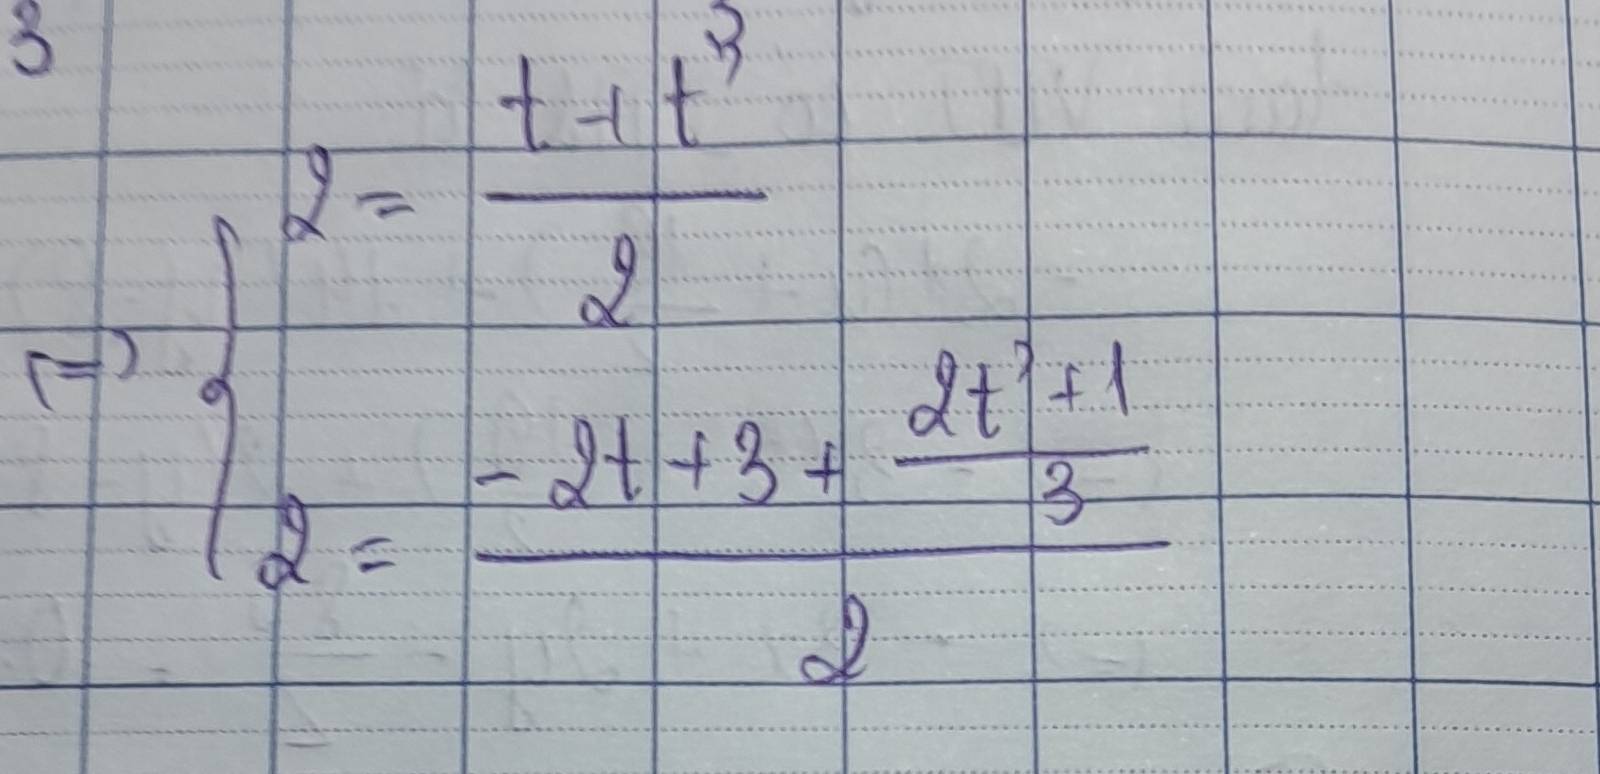 3
2 = (t + t³)/2
⇔ {
2 = (-2t + 3 + (2t' + 1)/3)/2